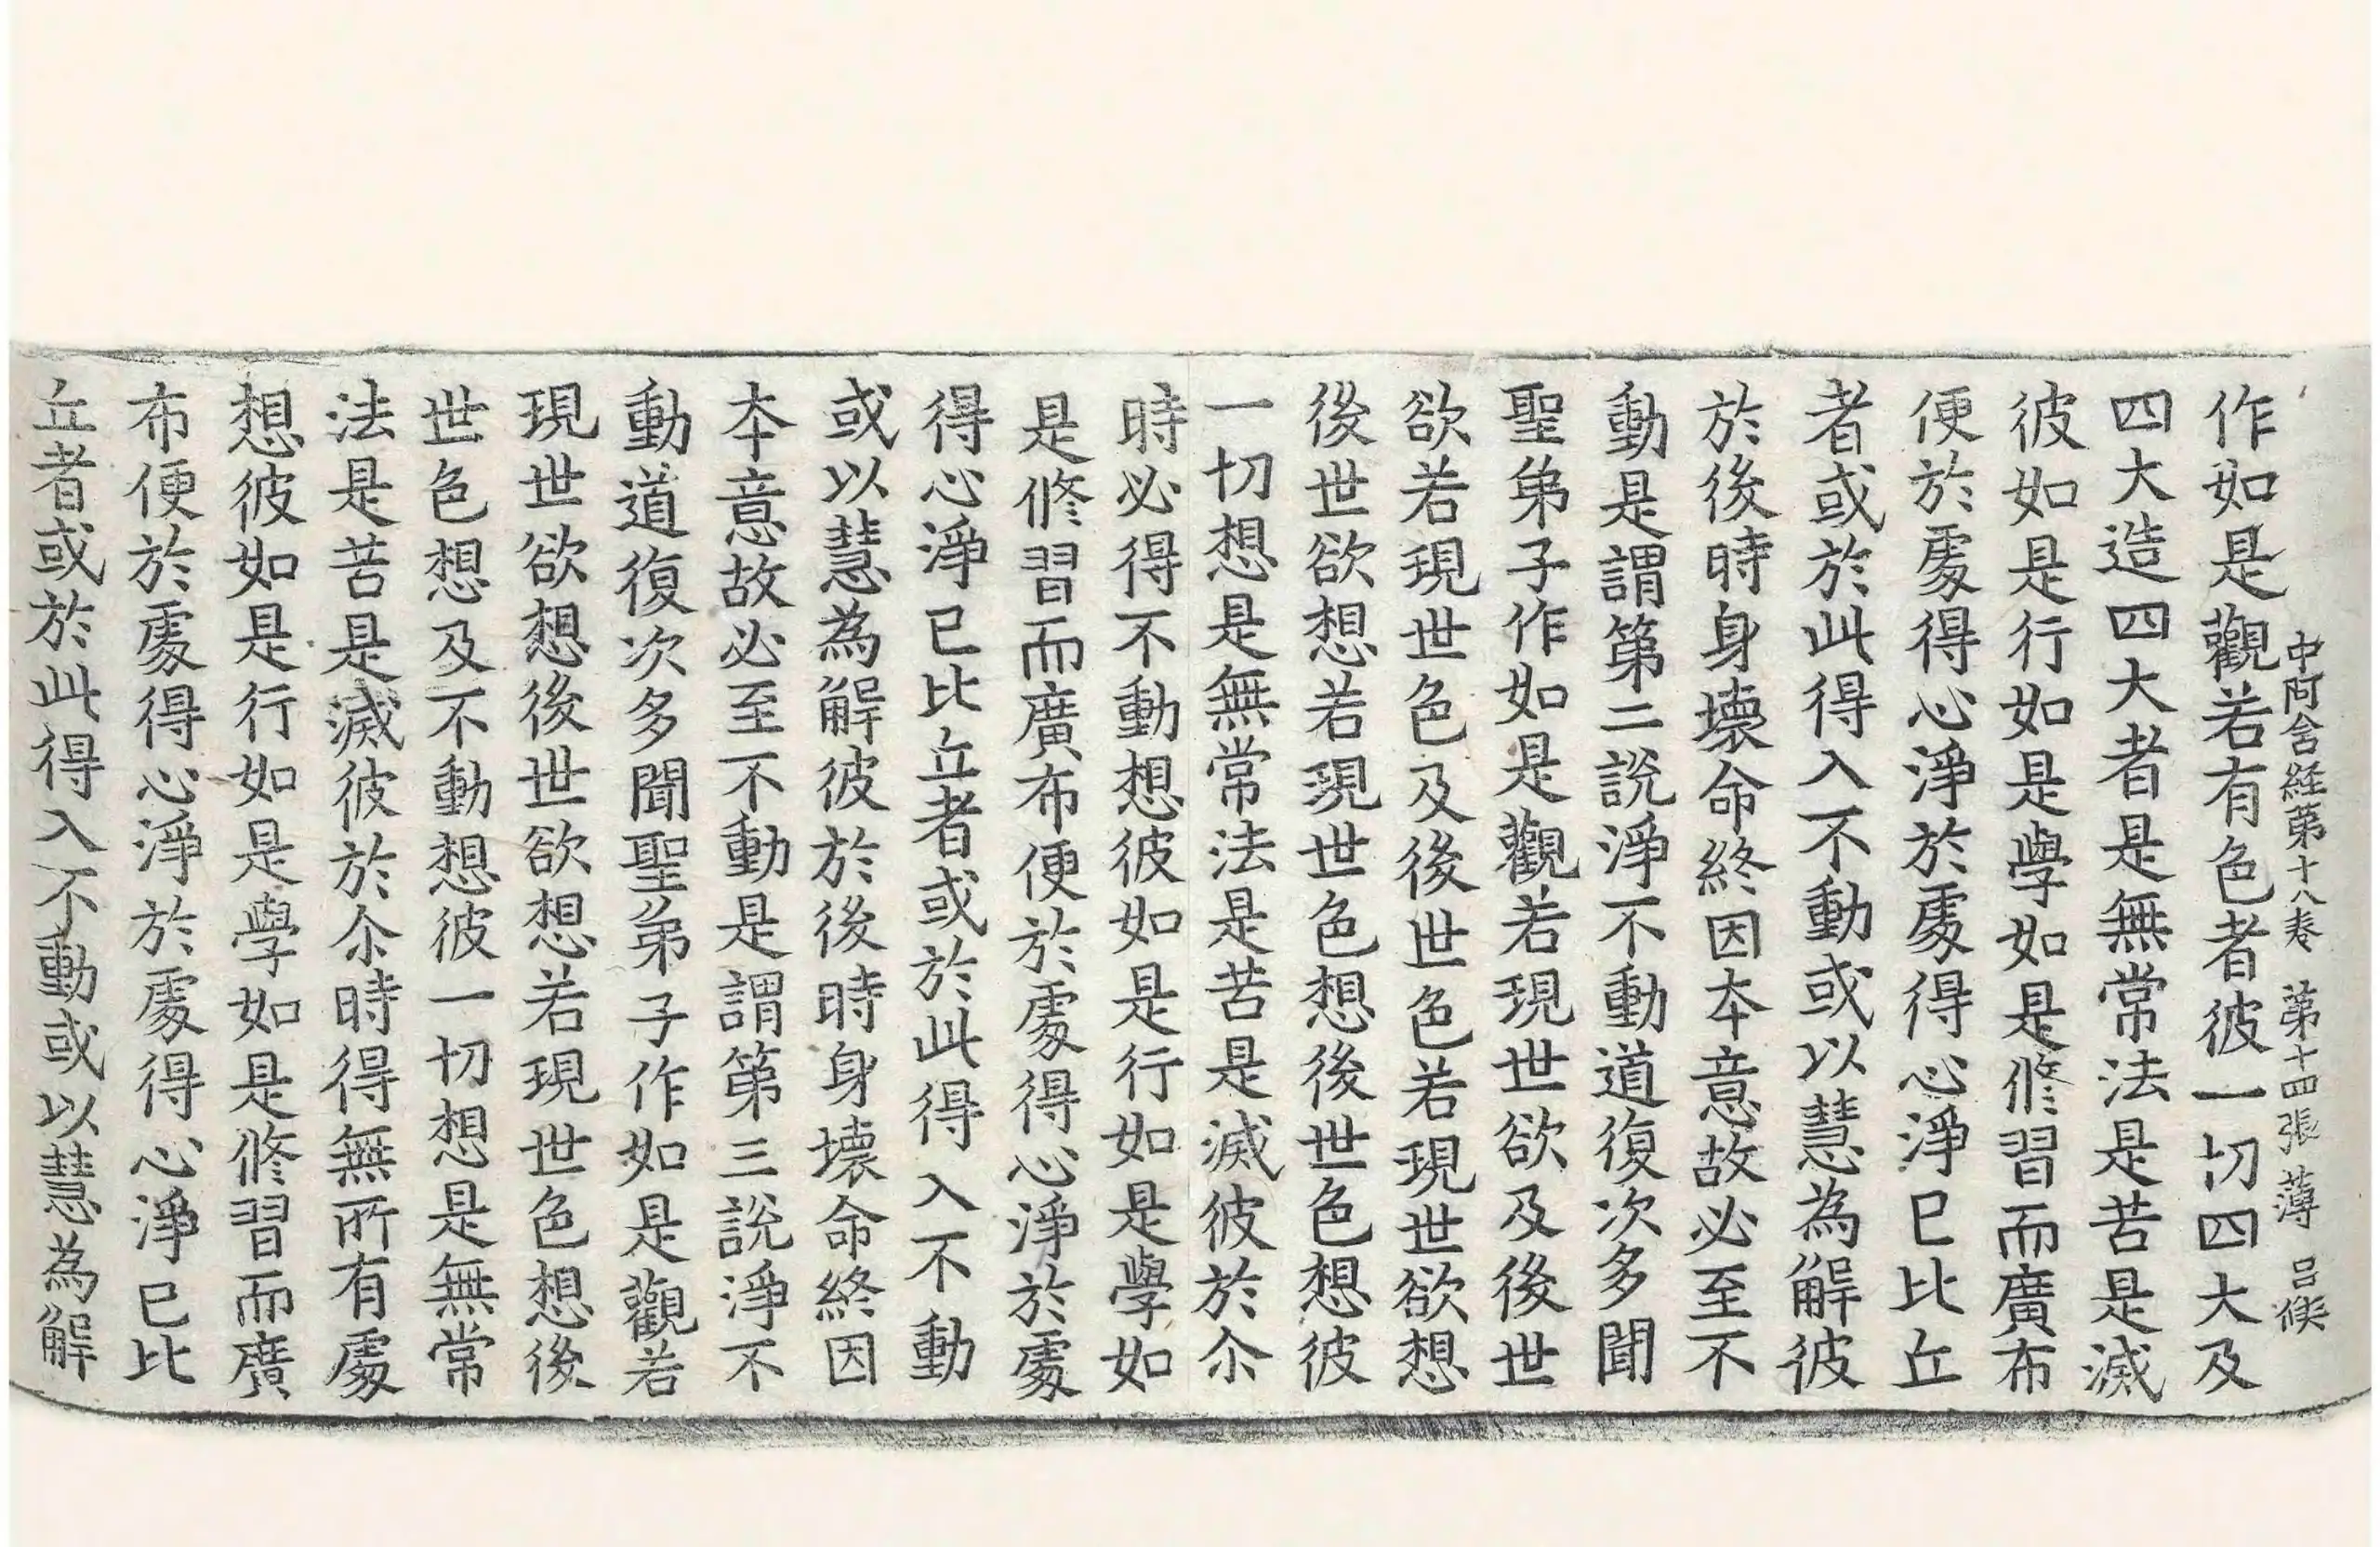 中阿含経第十八卷 第十四張 薄 吕僕
作如是觀若有色者彼一切四大及
四大造四大者是無常法是苦是滅
彼如是行如是學如是修習而廣布
便於處得心淨於處得心淨已比丘
者或於此得入不動或以慧為解彼
於後時身壞命終因本意故必至不
動是謂第二說淨不動道復次多聞
聖弟子作如是觀若現世欲及後世
欲若現世色及後世色若現世欲想
後世欲想若現世色想後世色想彼
一切想是無常法是苦是滅彼於尒
時必得不動想彼如是行如是學如
是修習而廣布便於處得心淨於處
得心淨已比丘者或於此得入不動
或以慧為解彼於後時身壞命終因
本意故必至不動是謂第三說淨不
動道復次多聞聖弟子作如是觀若
現世欲想後世欲想若現世色想後
世色想及不動想彼一切想是無常
法是苦是滅彼於尒時得無所有處
想彼如是行如是學如是修習而廣
布便於處得心淨於處得心淨已比
丘者或於此得入不動或以慧為解